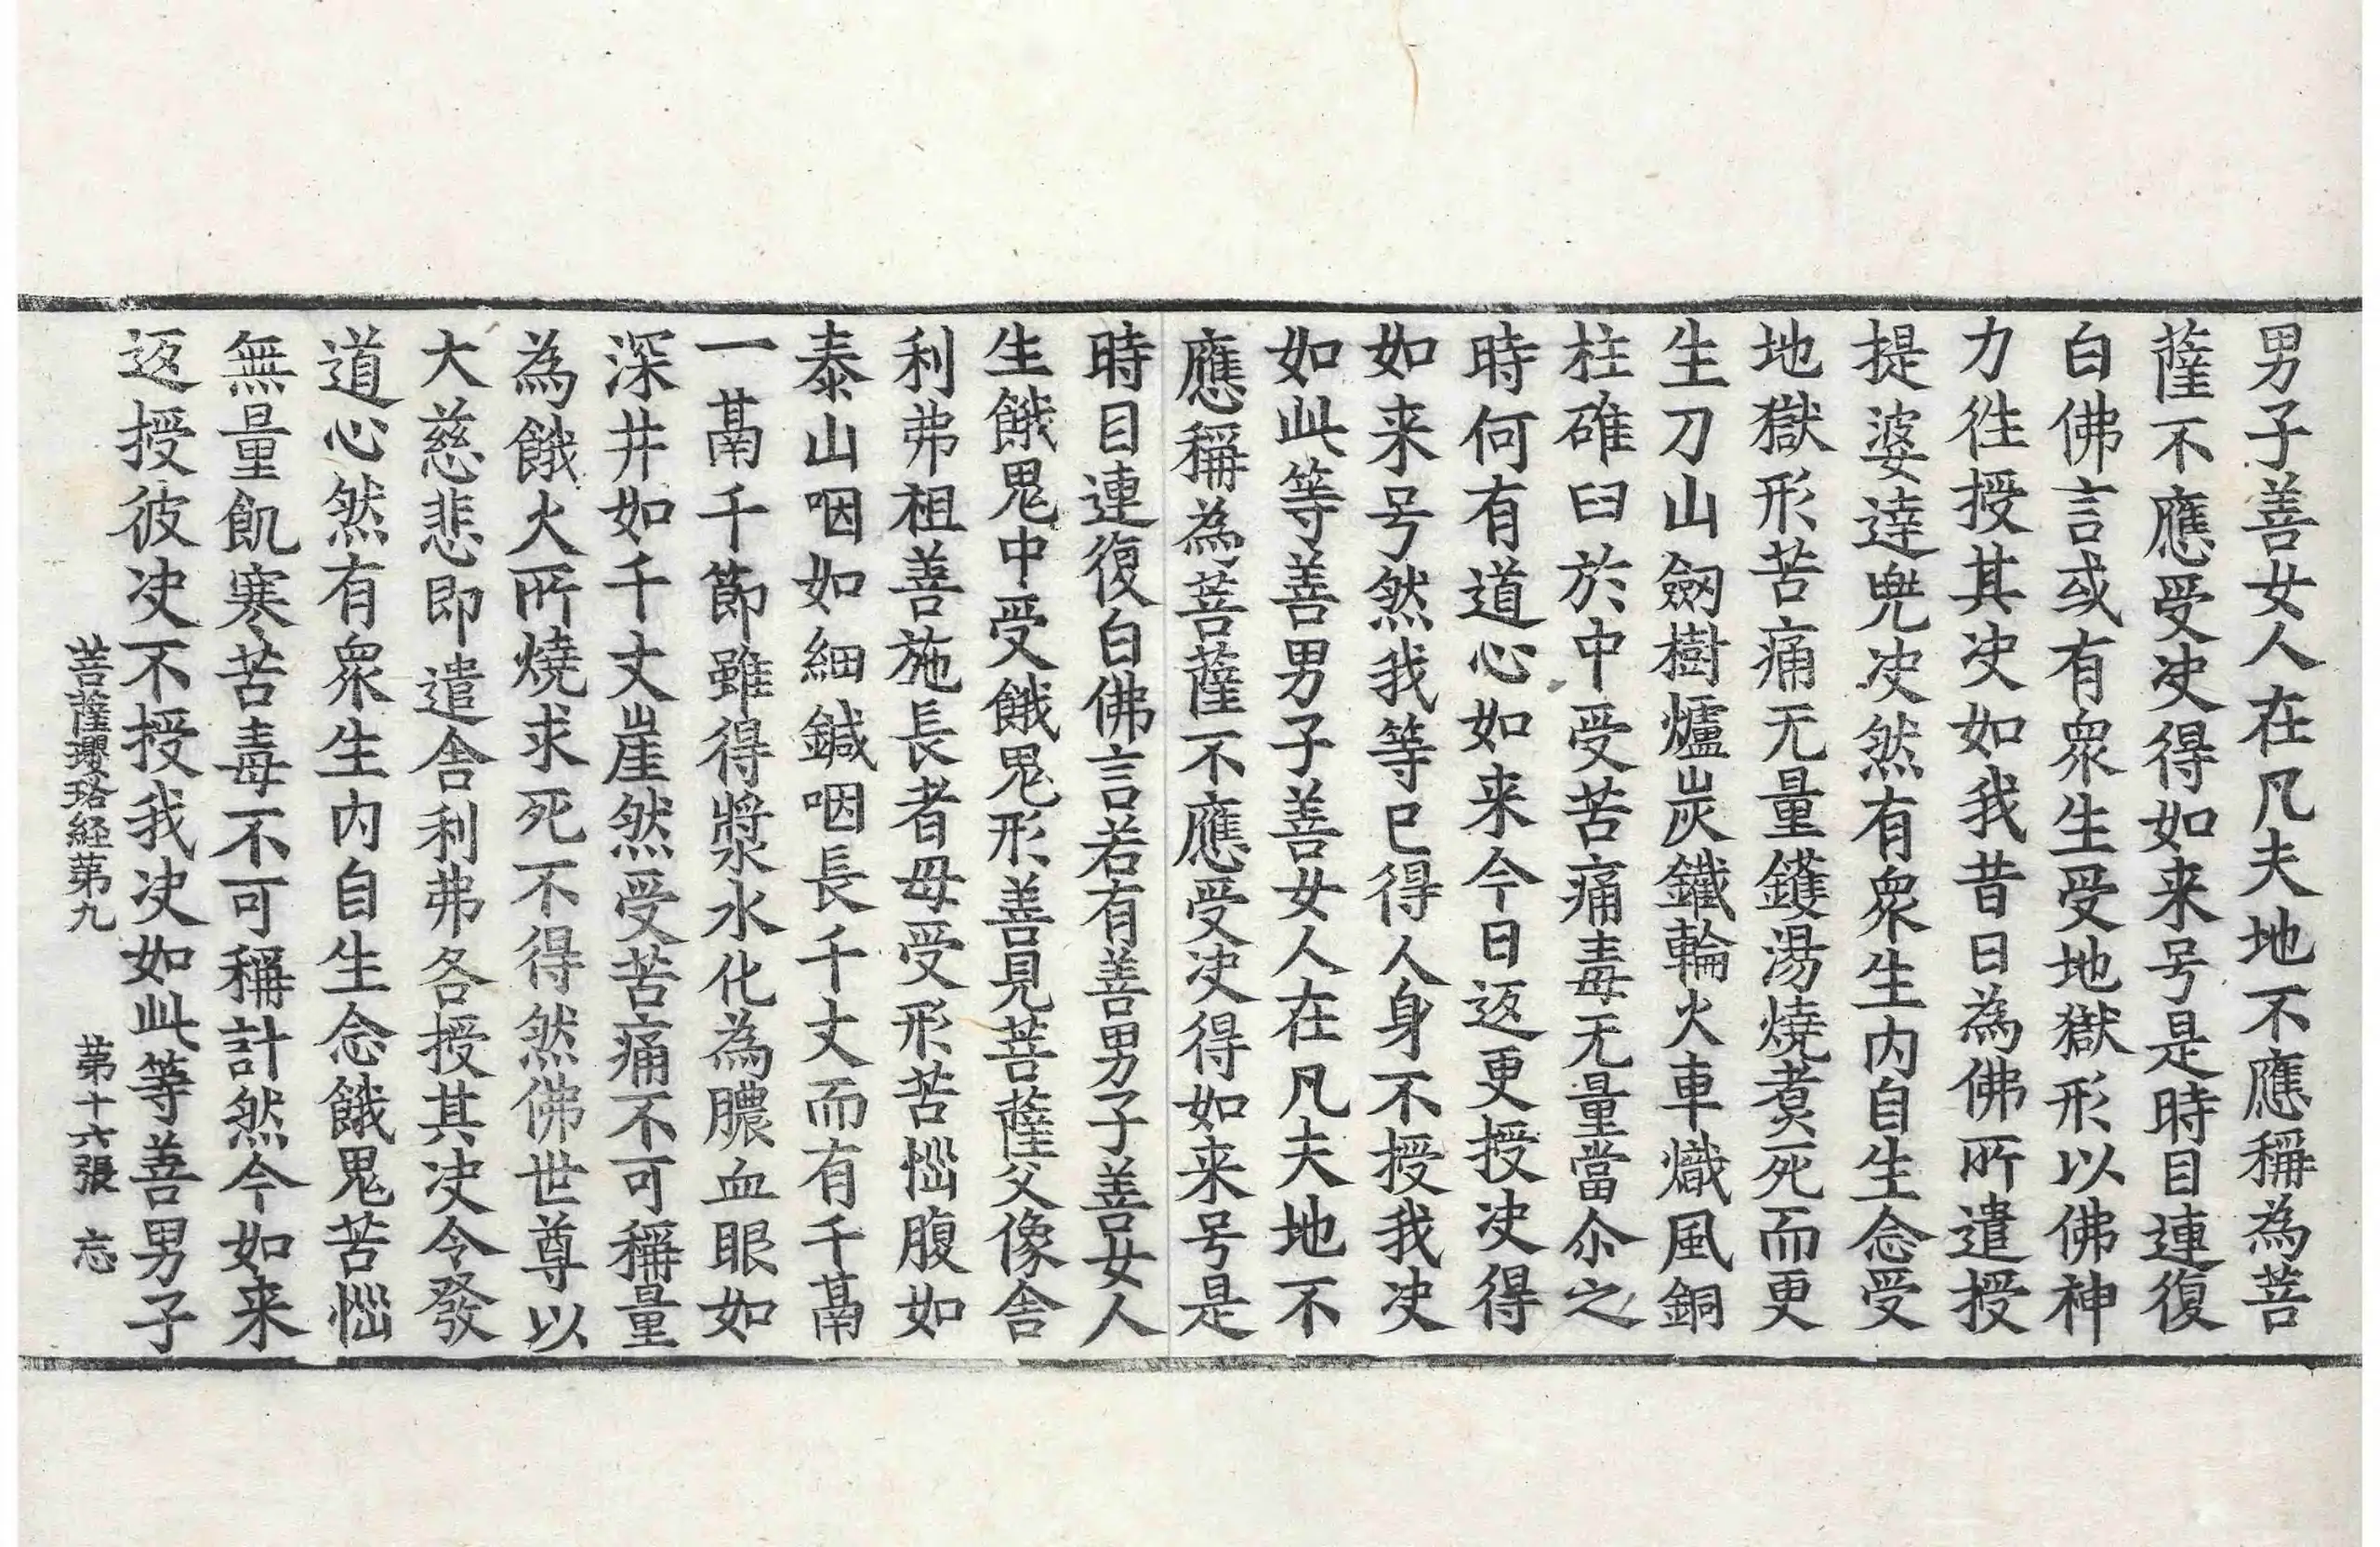 男子善女人在凡夫地不應稱為菩
薩不應受决得如来号是時目連復
白佛言或有衆生受地獄形以佛神
力徃授其决如我昔日為佛所遣授
提婆達兜决然有衆生内自生念受
地獄形苦痛无量鑊湯燒煑死而更
生刀山劒樹爐炭鐵輪火車熾風銅
柱碓臼於中受苦痛毒无量當尒之
時何有道心如来今日返更授决得
如来号然我等已得人身不授我决
如此等善男子善女人在凡夫地不
應稱為菩薩不應受决得如来号是
時目連復白佛言若有善男子善女人
生餓鬼中受餓鬼形善見菩薩父像舍
利弗祖善施長者母受形苦惱腹如
泰山咽如細鍼咽長千丈而有千鬲
一鬲千節雖得漿水化為膿血眼如
深井如千丈崖然受苦痛不可稱量
為餓火所燒求死不得然佛世尊以
大慈悲即遣舍利弗各授其决令發
道心然有衆生内自生念餓鬼苦惱
無量飢寒苦毒不可稱計然今如来
返授彼决不授我决如此等善男子
菩薩瓔珞経第九 第十六張 忘